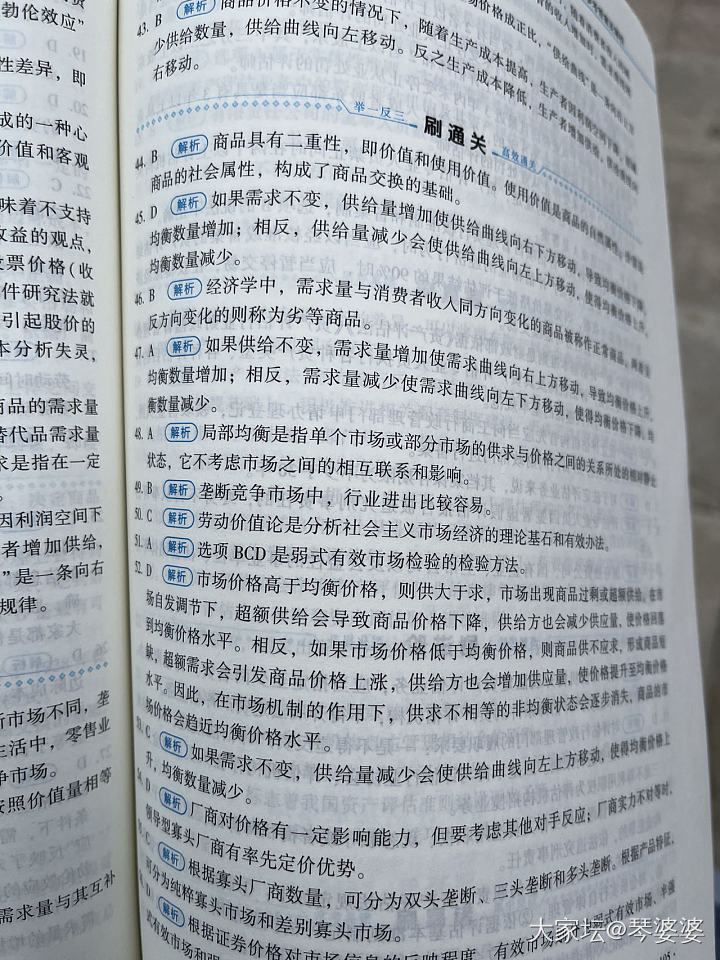 勃伦效应”
性差异，即
成的一种心
价值和客观
味着不支持
收益的观点，
发票价格(收
件研究法就
引起股价的
本分析失灵，
商品的需求量
替代品需求量
求是指在一定
因利润空间下
者增加供给，
”是一条向右
规律。
断市场不同，垄
生活中，零售业
争市场。
按照价值量相等
需求量与其互补
43. B 解析 商品价格不变的情况下，随着生产成本提高，生产者因利润空间下
少供给数量，供给曲线向左移动。反之生产成本降低，生产者增加供给，供给曲线向
右移动。
举一反三 刷通关 高效通关
44. B 解析 商品具有二重性，即价值和使用价值。使用价值是商品的自然属性，价值是
商品的社会属性，构成了商品交换的基础。
45. D 解析 如果需求不变，供给量增加使供给曲线向右下方移动，导致均衡价格下降，
均衡数量增加；相反，供给量减少会使供给曲线向左上方移动，使得均衡价格上升，
均衡数量减少。
46. B 解析 经济学中，需求量与消费者收入同方向变化的商品被称作正常商品，两者呈
反方向变化的则称为劣等商品。
47. A 解析 如果供给不变，需求量增加使需求曲线向右上方移动，导致均衡价格上升，
均衡数量增加；相反，需求量减少使需求曲线向左下方移动，使得均衡价格下降，均
衡数量减少。
48. A 解析 局部均衡是指单个市场或部分市场的供求与价格之间的关系所处的相对静止
状态，它不考虑市场之间的相互联系和影响。
49. B 解析 垄断竞争市场中，行业进出比较容易。
50. C 解析 劳动价值论是分析社会主义市场经济的理论基石和有效办法。
51. A 解析 选项 BCD 是弱式有效市场检验的检验方法。
52. D 解析 市场价格高于均衡价格，则供大于求，市场出现商品过剩或超额供给。在市
场自发调节下，超额供给会导致商品价格下降，供给方也会减少供应量，使价格回落
到均衡价格水平。相反，如果市场价格低于均衡价格，则商品供不应求，形成商品短
缺，超额需求会引发商品价格上涨，供给方也会增加供应量，使价格提升至均衡价格
水平。因此，在市场机制的作用下，供求不相等的非均衡状态会逐步消失，商品的市
场价格会趋近均衡价格水平。
53. C 解析 如果需求不变，供给量减少会使供给曲线向左上方移动，使得均衡价格上
升，均衡数量减少。
54. D 解析 厂商对价格有一定影响能力，但要考虑其他对手反应；厂商实力不对等时，
领导型寡头厂商有率先定价优势。
C 解析 根据寡头厂商数量，可分为双头垄断、三头垄断和多头垄断。根据产品特征，
可分为纯粹寡头市场和差别寡头市场。
D 解析 根据证券价格对市场信息的反映程度，有效市场 弱式有效市场、半强
式有效市场和强
大家坛@琴婆婆